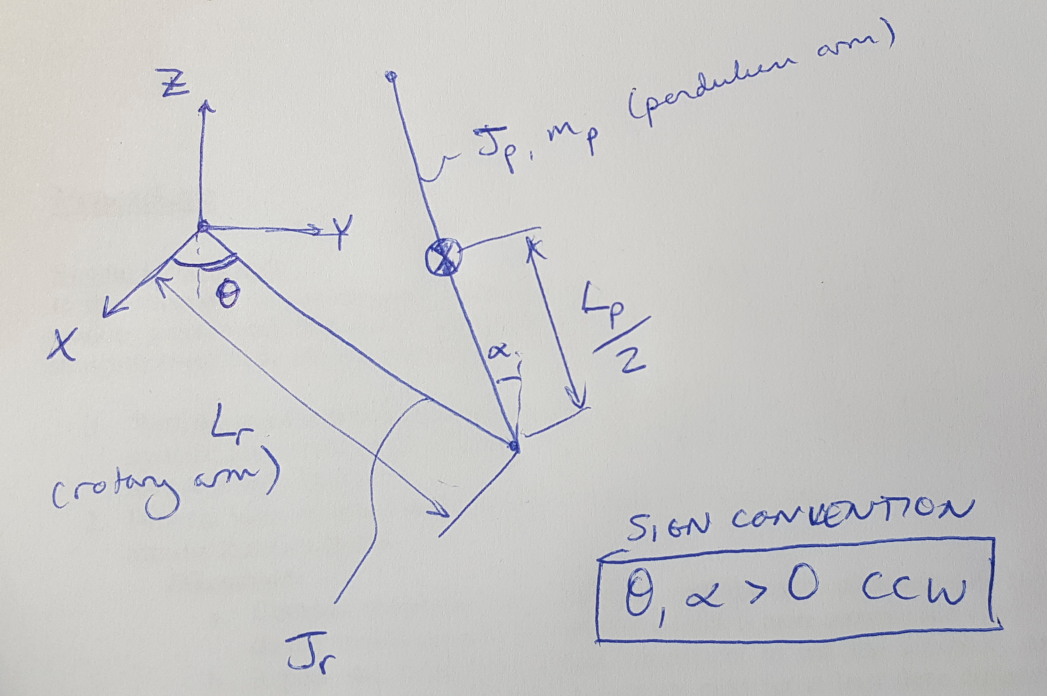 Z
J_p, m_p (pendulum arm)
Y
θ
X
L_p/2
α
L_r
(rotary arm)
SIGN CONVENTION
θ, α > 0 CCW
J_r